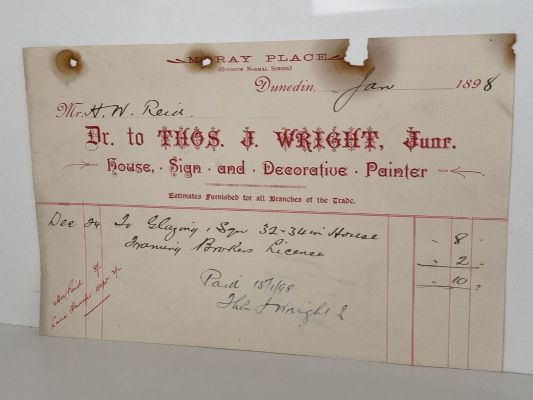 M RAY PLACE
(OPPOSITE NORMAL SCHOOL)
Dunedin, Jan 1898
Mr. H. W. Reid.
Dr. to THOS. J. WRIGHT, Junr.
House, · Sign · and · Decorative · Painter
Estimates Furnished for all Branches of the Trade.
Dec 24 To Glazing 1 Sqr 32 × 34 in House " 8 "
Framing Brokers Licence " 2 "
" 10 "
Paid 15/1/98
Thos J Wright